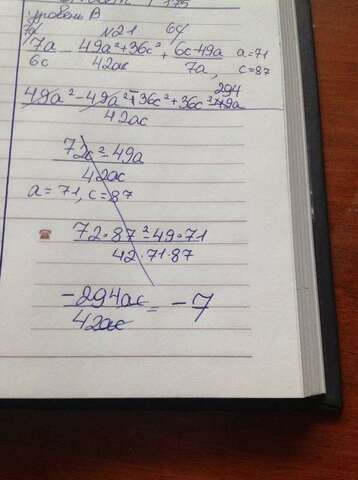 175
уровень В
N21 6c
7a/6c - 49a²+36c²/42ac + 6c-49a/7a, a=71
c=87
294
49a²-49a²+36c²+36c²-49a/42ac
72c²-49a/42ac
a=71, c=87
72·87²-49·71/42·71·87
-294ac/42ac = -7